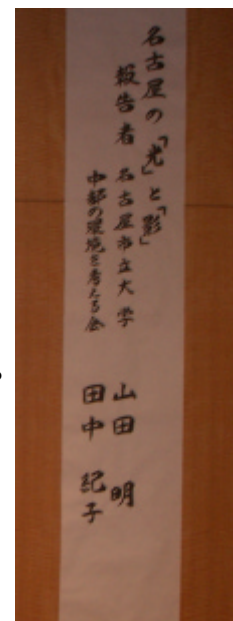 名古屋の「光」と「影」
報告者 名古屋市立大学 山田 明
中部の環境を考える会 田中 紀子